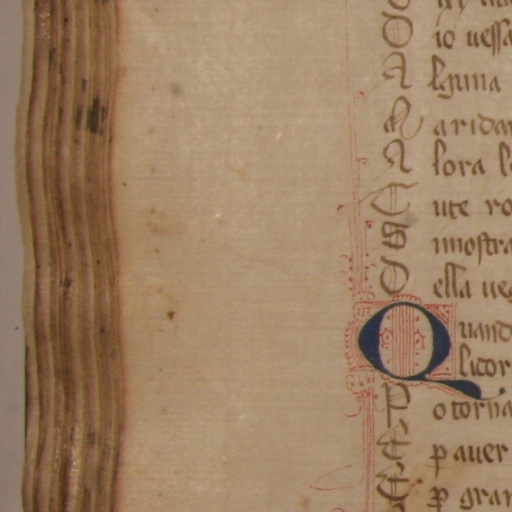 O io uessa
A lguna
M aridar
A lora l
T ute ro
S imostra
D ella ueg
Quand
licor
P otorna
E p auer
E p gran